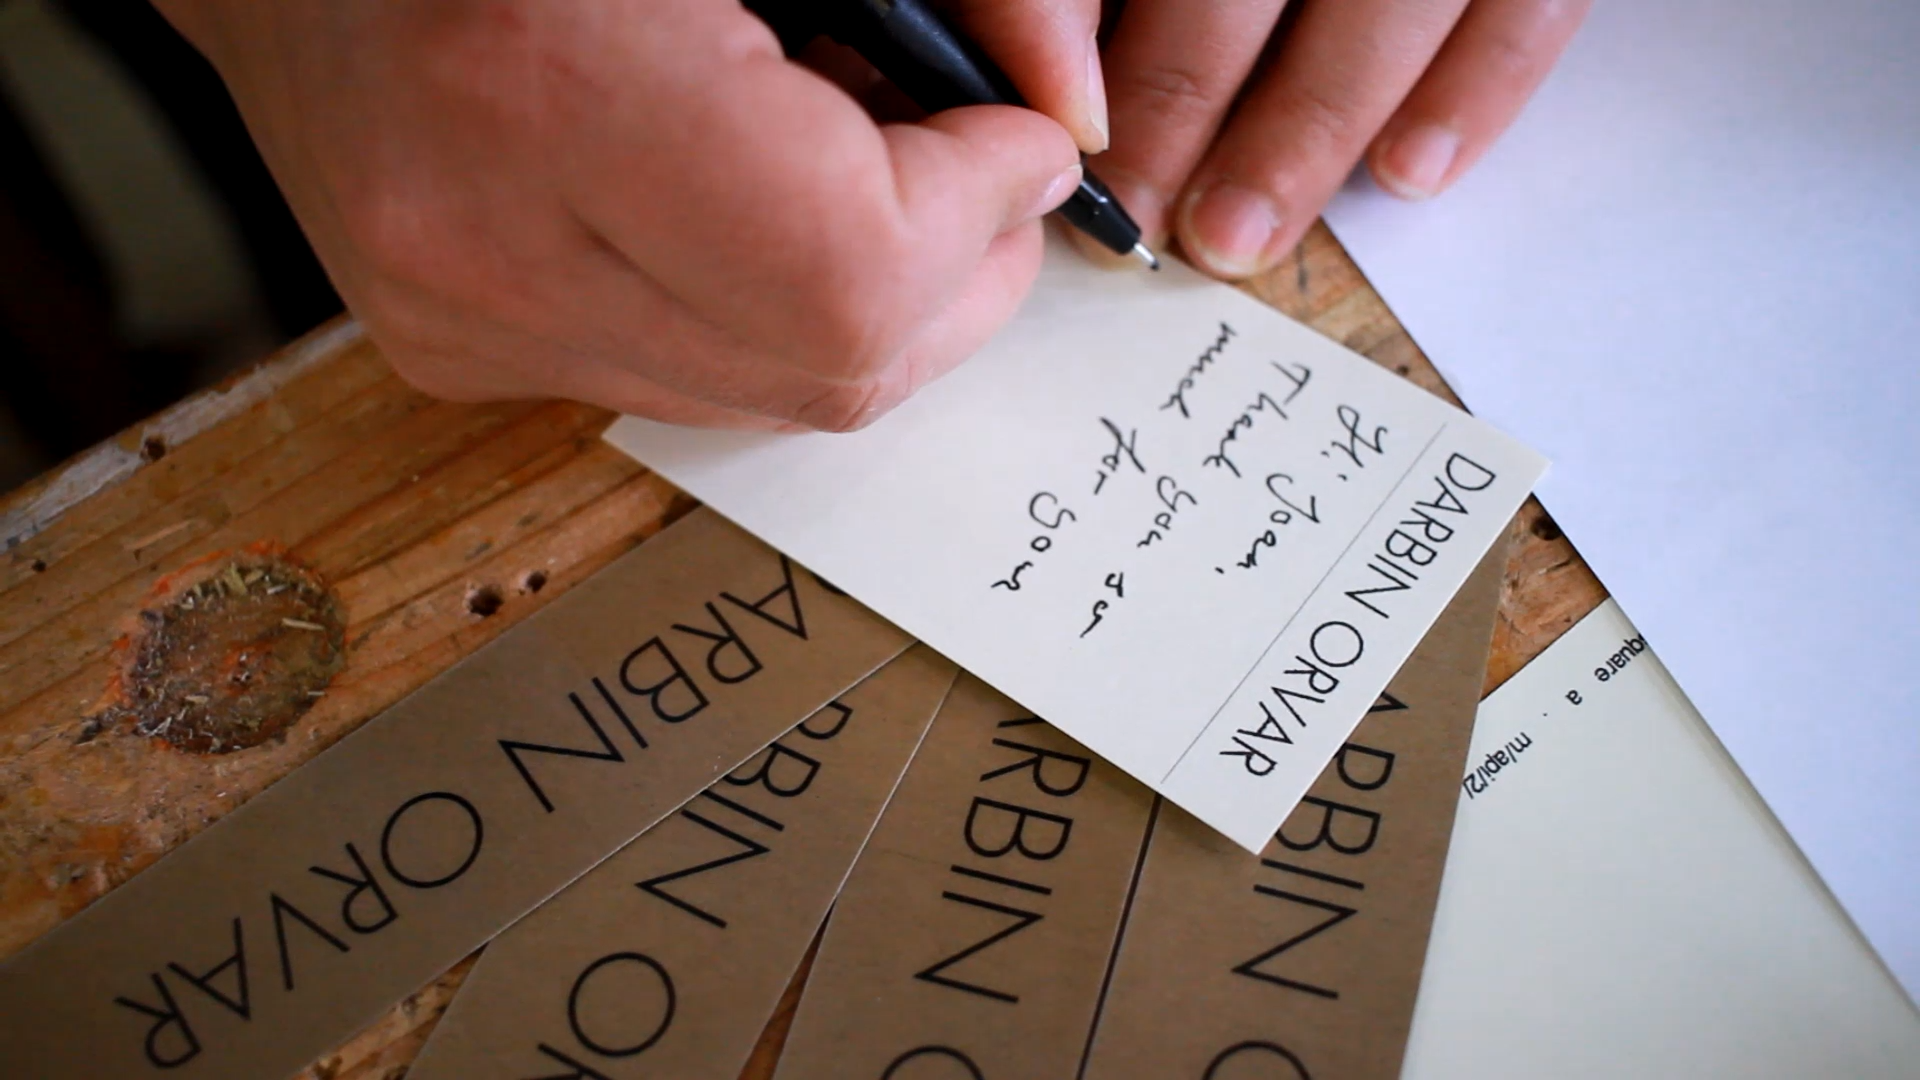 DARBIN ORVAR
Hi Joan,
Thank you so
much for your
ARBIN ORVAR
RBIN OR
RBIN O
ARBIN O
quare a .
m/api/2/